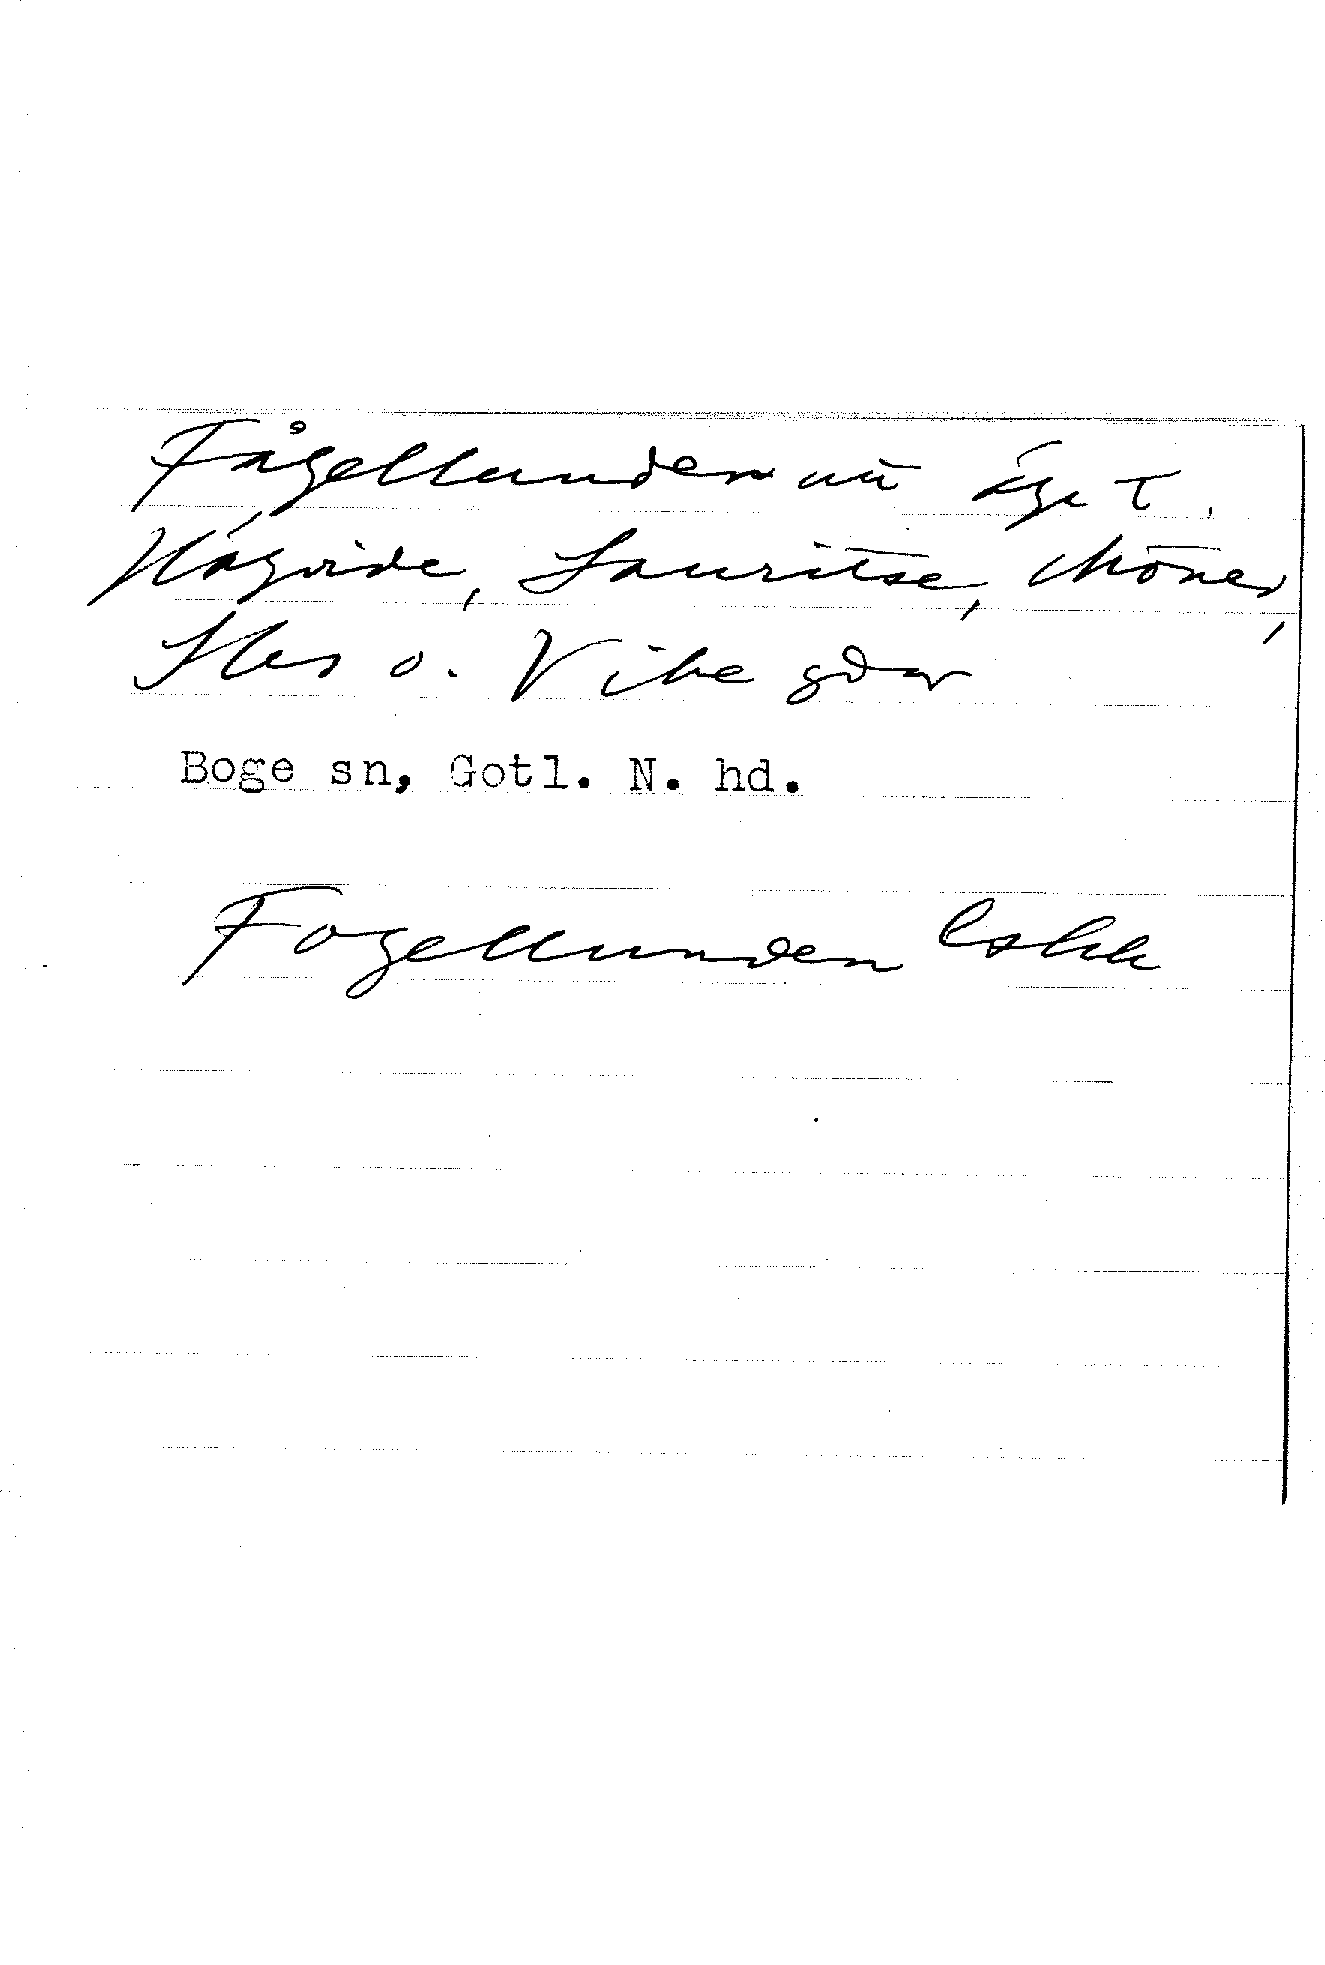 Fågellunden nu äge t.
Hägvide, Lauritse, Möne,
Sles o. Vike gdar
Boge sn, Gotl. N. hd.
Fogellunden